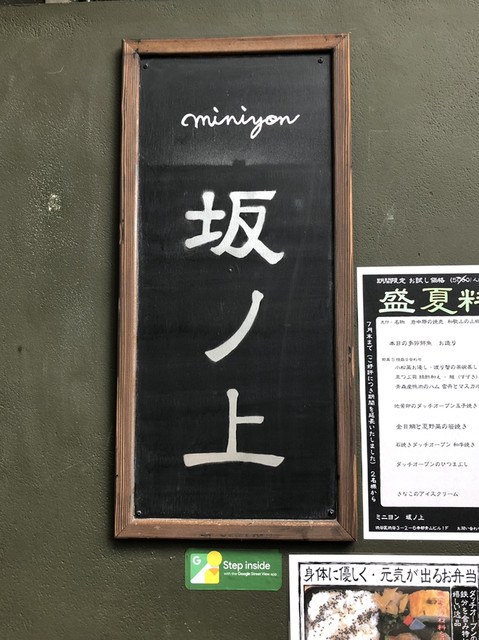 miniyon
坂ノ上
期間限定 お試し価格
盛夏料
本日の多種鮮魚 お造り
金目鯛と夏野菜の笹焼き
石焼きダッチオーブン 和牛焼き
ダッチオーブンのひつまぶし
きなこのアイスクリーム
7月末まで(ご好評につき期間を延長いたしました) 2名様から
ミニヨン 坂ノ上
Step inside
with the Google Street View app
身体に優しく・元気が出るお弁当
ダッチオーブンの
鉄分を含み特
嬉しい逸品